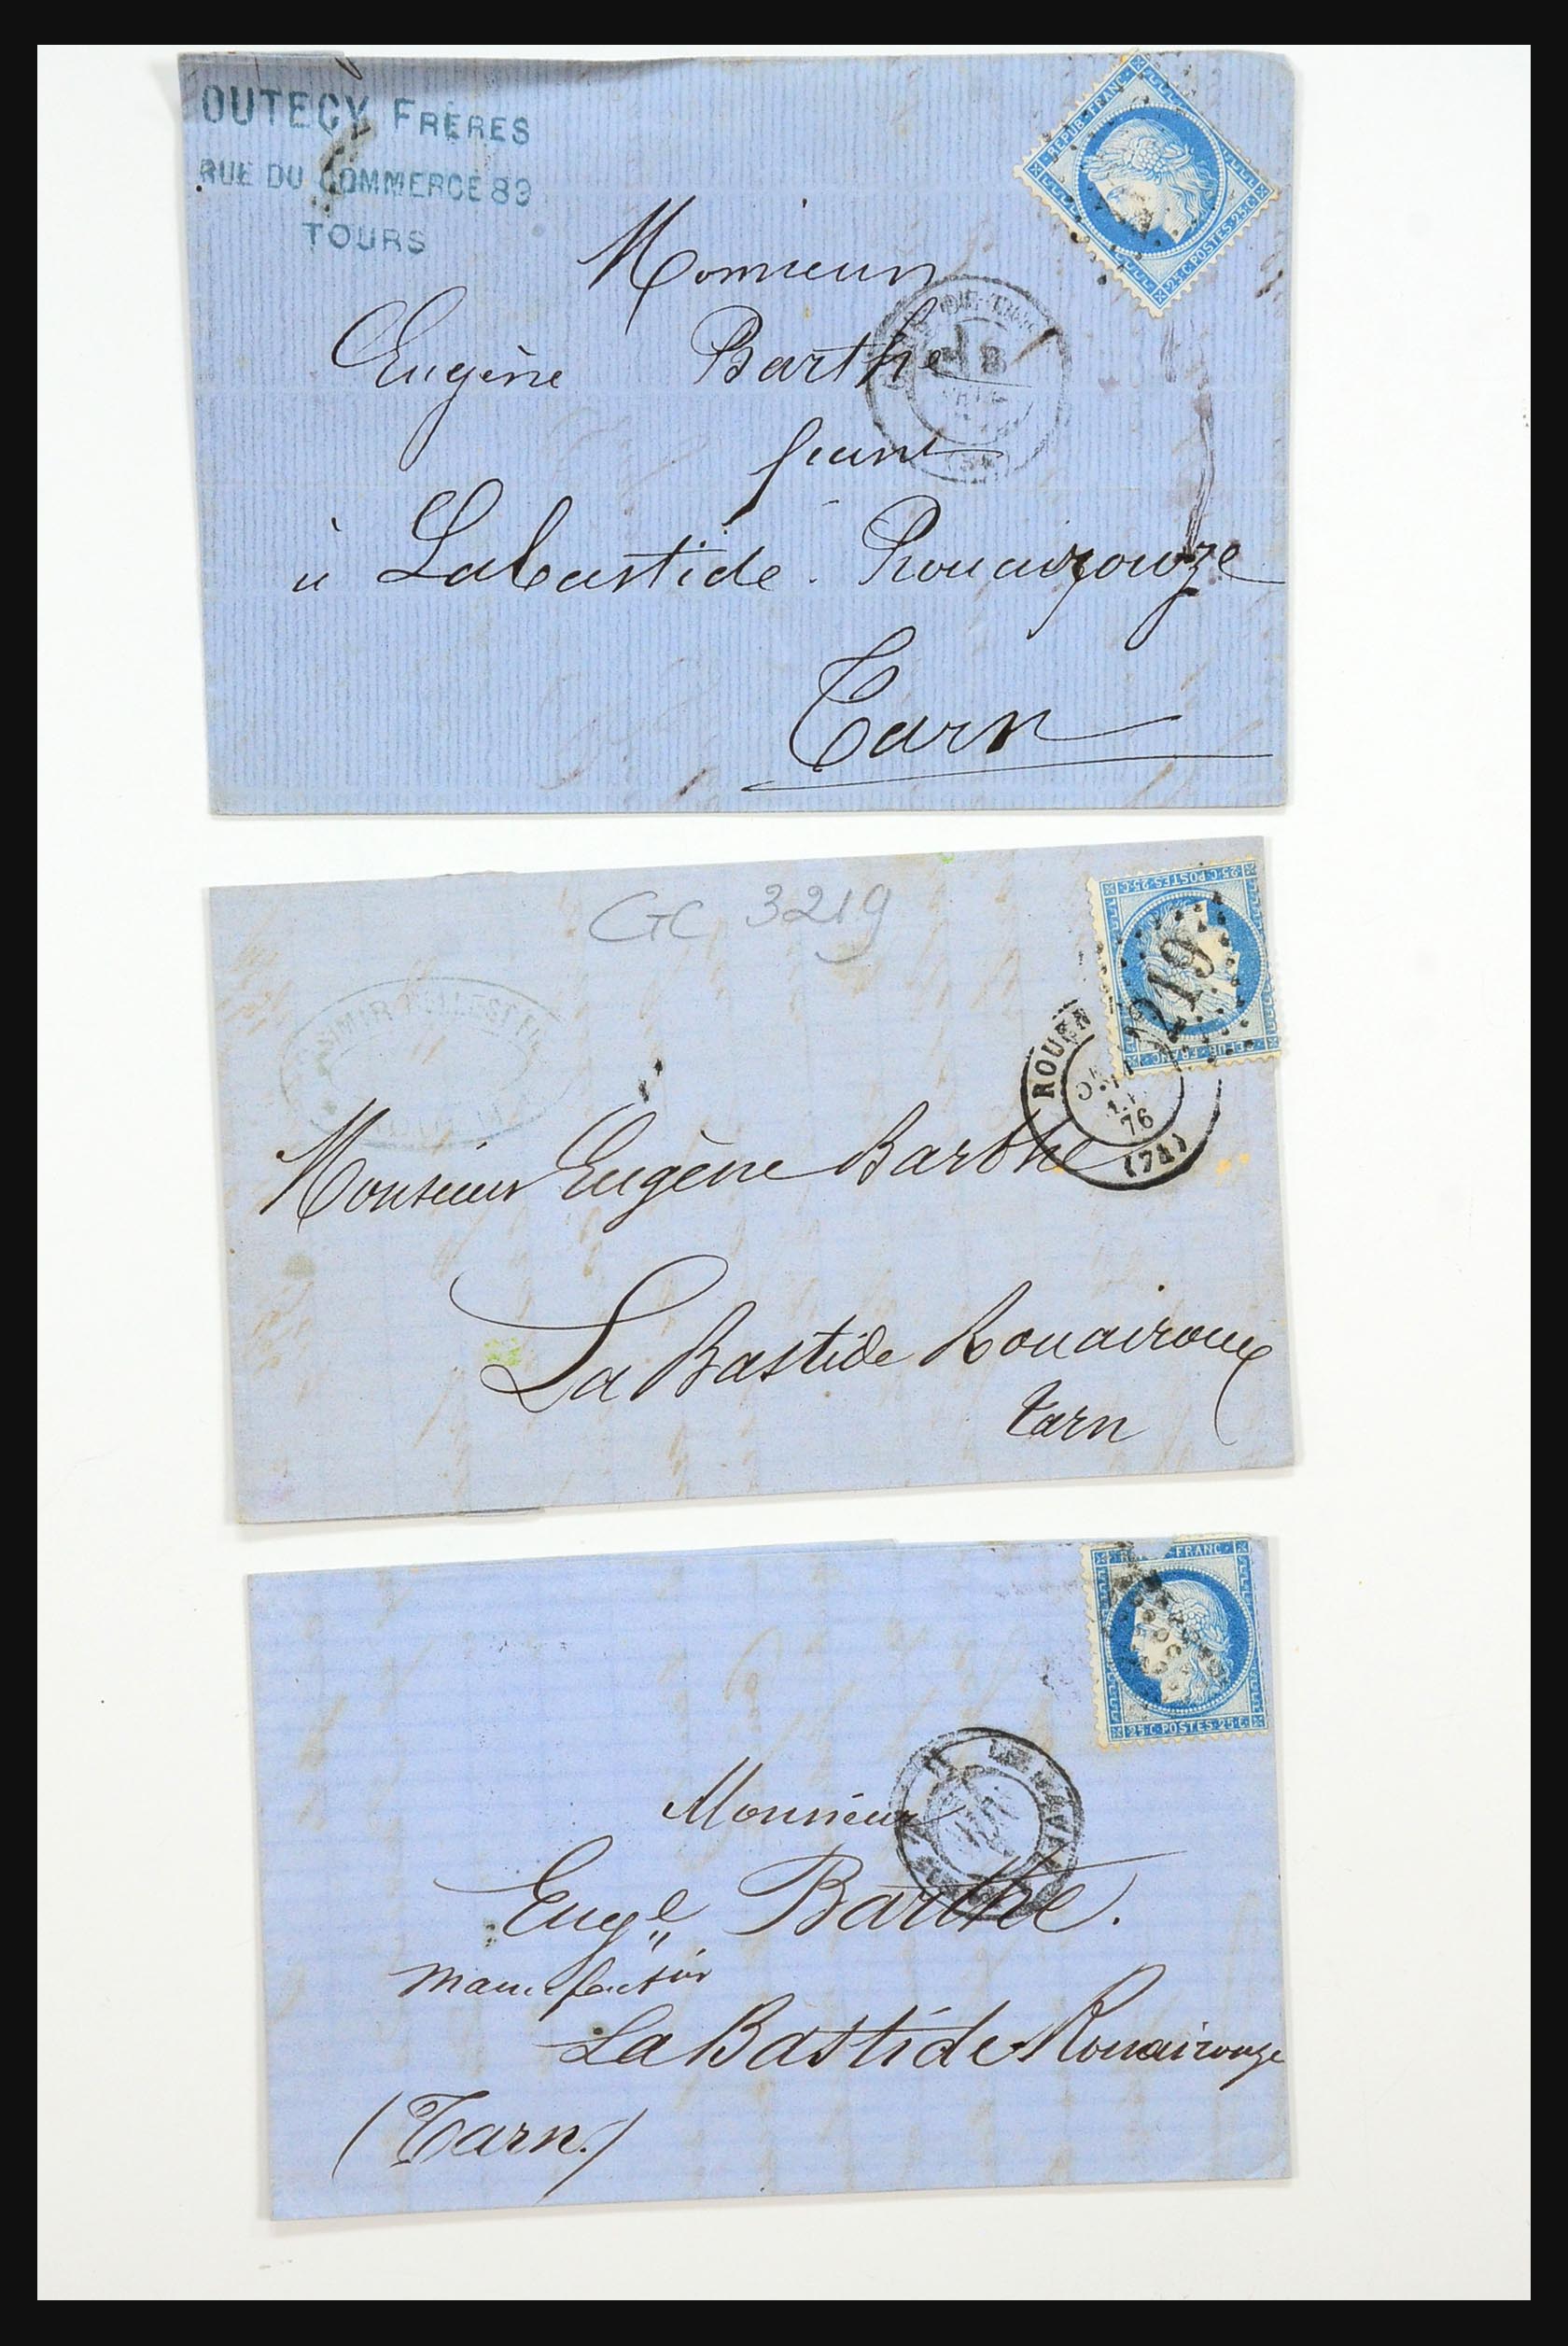 OUTECY FRÈRES
RUE DU COMMERCE 83
TOURS
REPUB·FRANC·
25·C·POSTES·25·C·
Monsieur
Eugène Barthe
18
à Labastide-Rouairouze
Tarn
GC 3219
25·C·POSTES·25·C·
3219
FRANC·
ROUEN
76
(74)
Monsieur Eugène Barthe
La Bastide Rouairoux
tarn
FRANC·
25·C·POSTES·25·C·
Monsieur
Eugⁿᵉ Barthe.
Manufactur
La Bastide Rouairouze
(Tarn.)